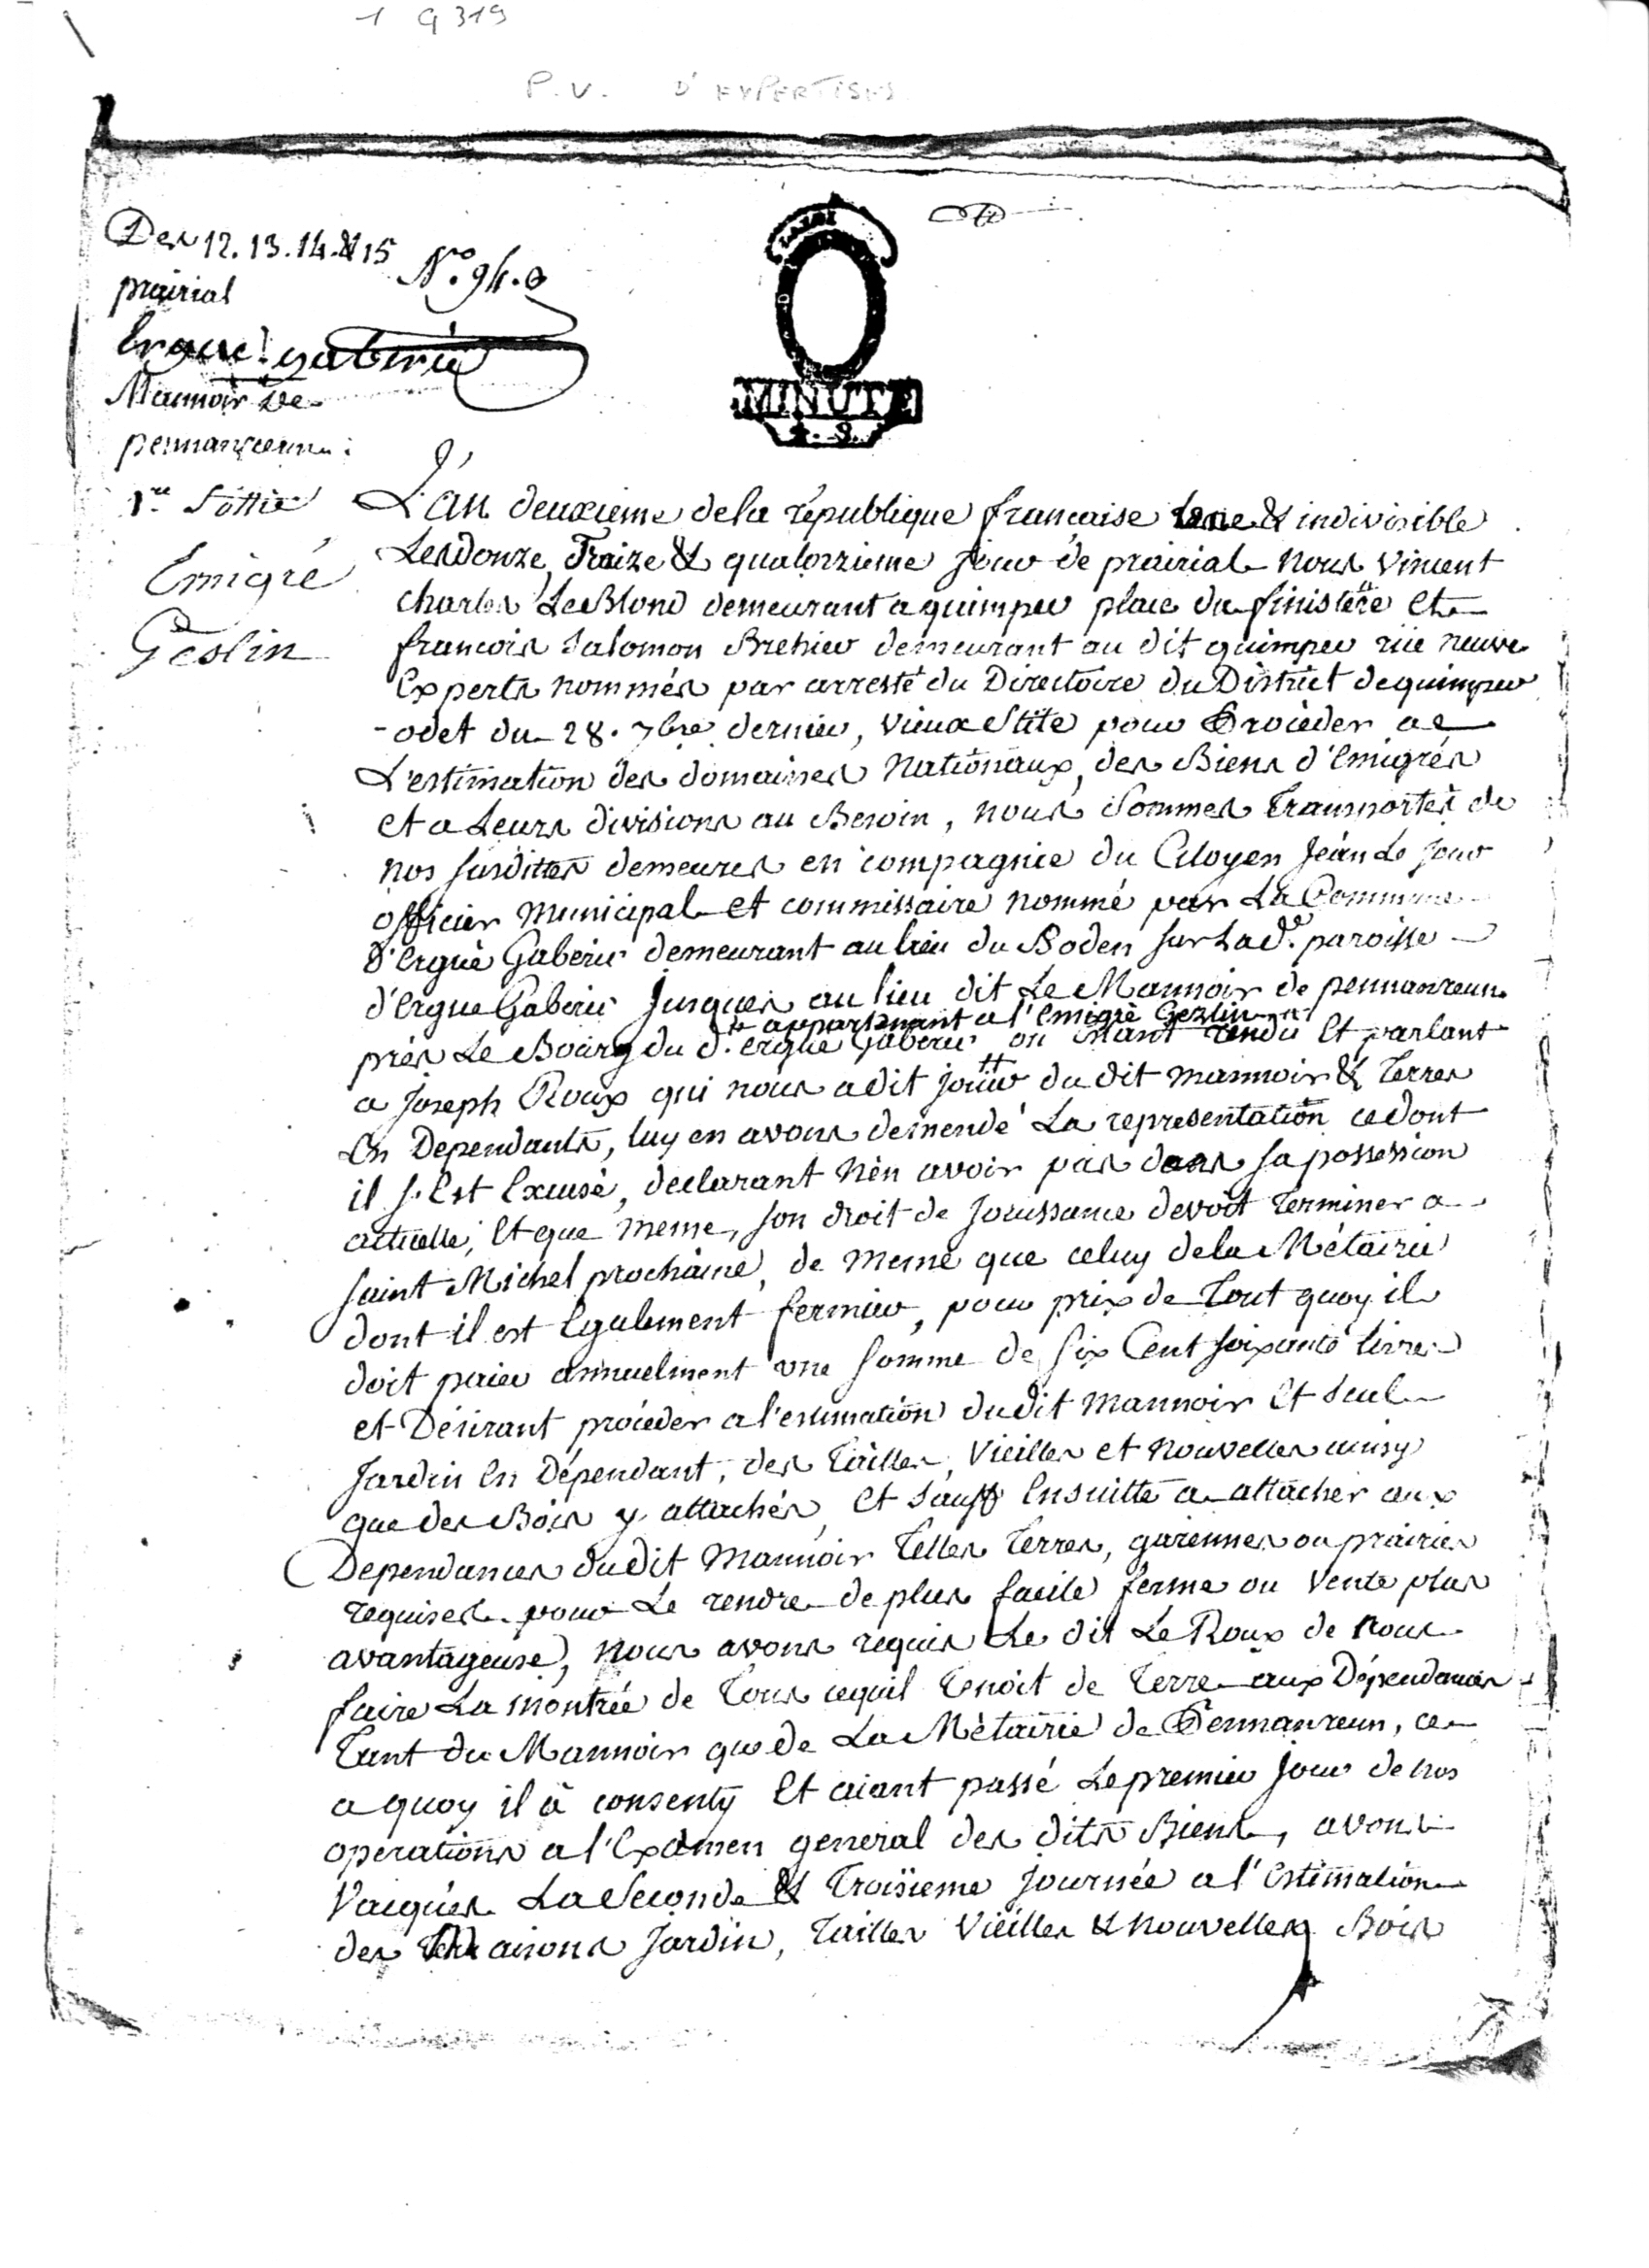 1 Q 319
P.V. D'EXPERTISES
Des 12. 13. 14. & 15
prairial
N.º 94.
Ergué-gaberic
Mannoir de
pennanreun.
1re Sottie
Emigré
Geslin
MINUTE
L'an deuxieme de la republique francaise une & indivisible
Les douze, Traize & quatorzieme jour de prairial nous Vincent
Charles Le Blond demeurant a quimper place du finistere Et
francois Salomon Brehier demeurant au dit quimper rüe neuve
Experts nommés par arresté du Directoire du District de quimper
-odet du 28. 7bre dernier, vieux Stile pour Proceder a
L'estimation des domaines Nationaux, des Biens d'Emigrés
et a Leurs divisions au Besoin, nous Sommes Transportés de
nos susdittes demeures en compagnie du Citoyen Jean Le Jour
officier Municipal et commissaire nommé par La Commune
d'Ergué Gaberic demeurant au lieu du Boden sur La de. paroisse
d'Ergue Gaberic Jusques au lieu dit Le Mannoir de pennanreun
# appartenant a l'Emigré Gezlin
prés Le Bourg du d. ergué Gaberic ou Etant rendu Et parlant
a Joseph Roux qui nous a dit joüir du dit mannoir & Terres
En Dependants, luy en avons demendé La representation ce dont
il s'Est Excusé, declarant n'en avoir pas dans sa possession
actuelle, Et que meme, son droit de Jouissance devoit Terminer a
saint Michel prochaine, de meme que celuy de la Métairie
dont il est Egalement fermier, pour prix de Tout quoy il
doit paier annuelment une somme de six Cent soixante livres
et Désirant procéder a l'estimation du dit mannoir Et seul
Jardin En Dépendant, des Tailles, Vieilles et nouvelles ainsy
que des Bois y attachés, Et sauf Ensuitte a attacher aux
Dependances dudit Mannoir Telles Terres, garennes ou prairies
requises pour Le rendre de plus facile ferme ou Vente plus
avantageuse, nous avons requis Le dit Le Roux de nous
faire La montrée de Tous cequil Tenoit de Terre aux Dépendances
Tant du Mannoir que de La Métairie de Pennanreun, ce
a quoy il à consenty Et aiant passé Le premier Jour de nos
operations a l'Examen general des dits Biens, avons
Vacqués La Seconde & Troisieme Journée a l'Estimation
des Maisons Jardin, Tailles Vieilles & nouvelles Bois